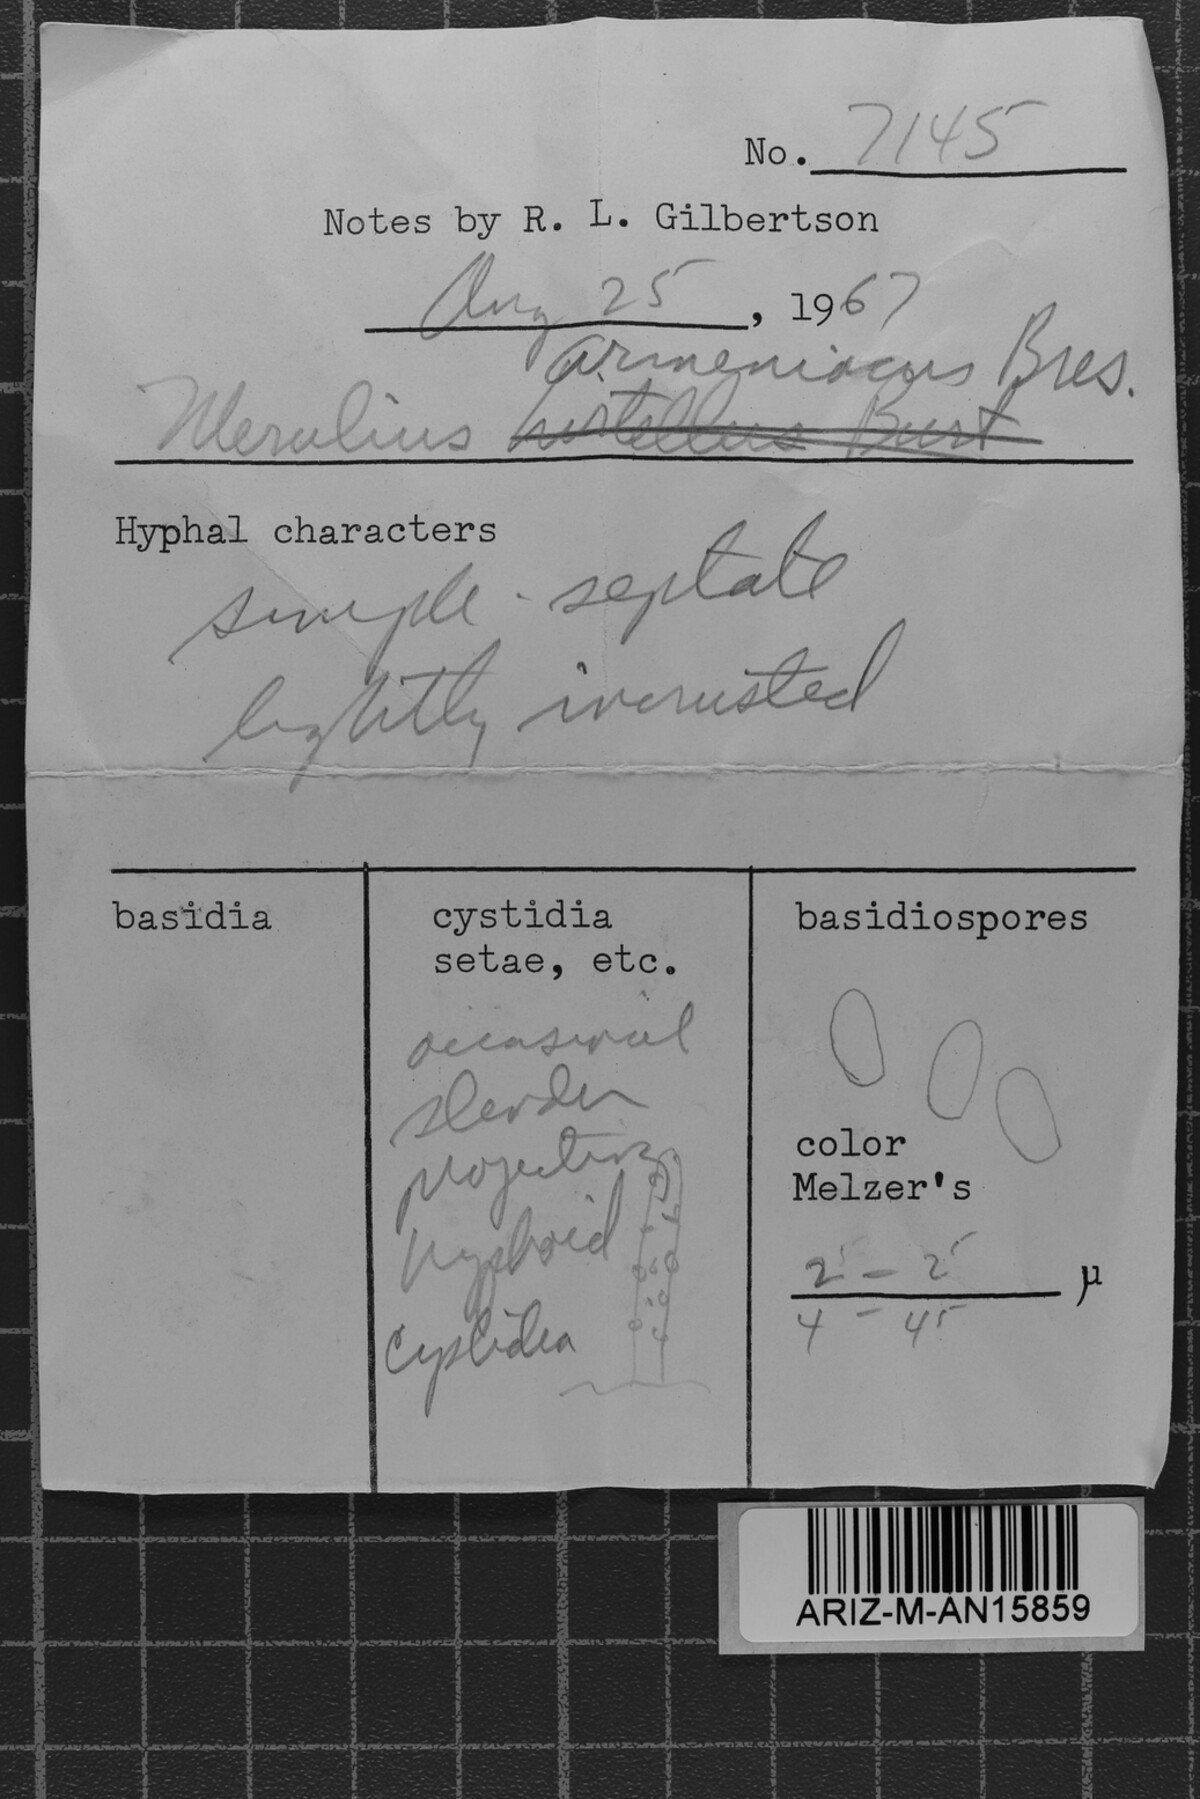 No. 7145
Notes by R. L. Gilbertson
Aug 25, 1967
armeniacus Bres.
Merulius hirtellus Burt
Hyphal characters
simple-septate
lightly incrusted
basidia
cystidia
setae, etc.
occasional
slender
projecting
hyphoid
cystidia
basidiospores
color
Melzer's
2 - 25 µ
4 - 45
ARIZ-M-AN15859